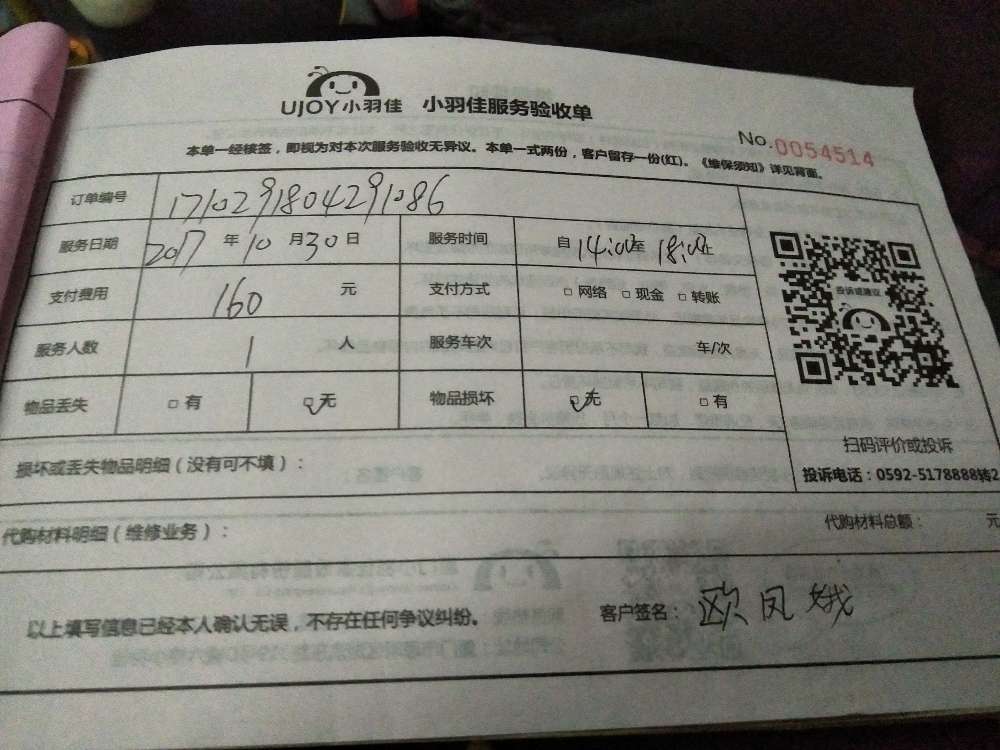 UJOY小羽佳 小羽佳服务验收单
No.0054514
本单一经核签，即视为对本次服务验收无异议。本单一式两份，客户留存一份(红)。《维保须知》详见背面。
订单编号 1710291804291086
服务日期 2017年10月30日 服务时间 自14:00至18:00止
支付费用 160 元 支付方式 □网络 □现金 □转账
服务人数 1 人 服务车次 车/次
物品丢失 □有 ☑无 物品损坏 ☑无 □有
投诉或建议
扫码评价或投诉
投诉电话：0592-5178888转2
损坏或丢失物品明细（没有可不填）：
代购材料明细（维修业务）： 代购材料总额： 元
以上填写信息已经本人确认无误，不存在任何争议纠纷。 客户签名：欧凤娥